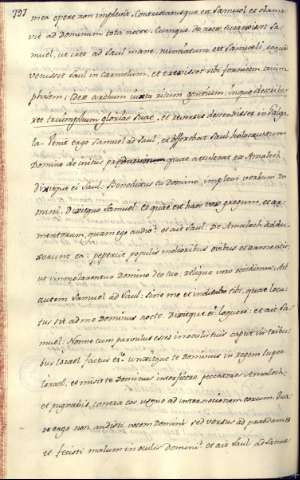 797
mea opere non implevit. Contristatusque est Samuel, et clama
vit ad Dominum tota nocte. Cumque de nocte surrexisset Sa
muel, ut iret ad Saul mane, nuntiatum est Samueli, eo quod
venisset Saul in Carmelum, et erexisset sibi fornicem trium
phalem, arcum iuxta ritum gentium,
triumphum gloriae suae, et reversus descendisset in Galga
la. Venit ergo Samuel ad Saul, et offerebat Saul holocaustum
Domino de initiis praedarum quae attulerat ex Amalech
dixitque ei Saul. Benedictus tu Domino, implevi verbum Do
mini. Dixitque Samuel. Et quae est haec vox gregum, et ar
mentorum, quam ego audio? et ait Saul. De Amalech addu
xerunt ea: pepercit populus melioribus ovibus et armentis,
ut immolarentur Domino deo tuo, reliqua vero occidimus. Ait
autem Samuel ad Saul: Sine me et indicabo tibi, quae locu
tus sit ad me Dominus nocte. Dixitque ei: loquere: et ait Sa
muel: Nonne cum parvulus esses in oculis tuis caput in tribu
bus Israel factus es? Unxitque te Dominus in regem super
Israel, et misit te Dominus interficere peccatores Amalech,
et pugnabis contra eos usque ad internecionem eorum. Qua
re ergo non audisti vocem Domini sed versus ad praedam es
et fecisti malum in oculis domini? et ait Saul ad Samue